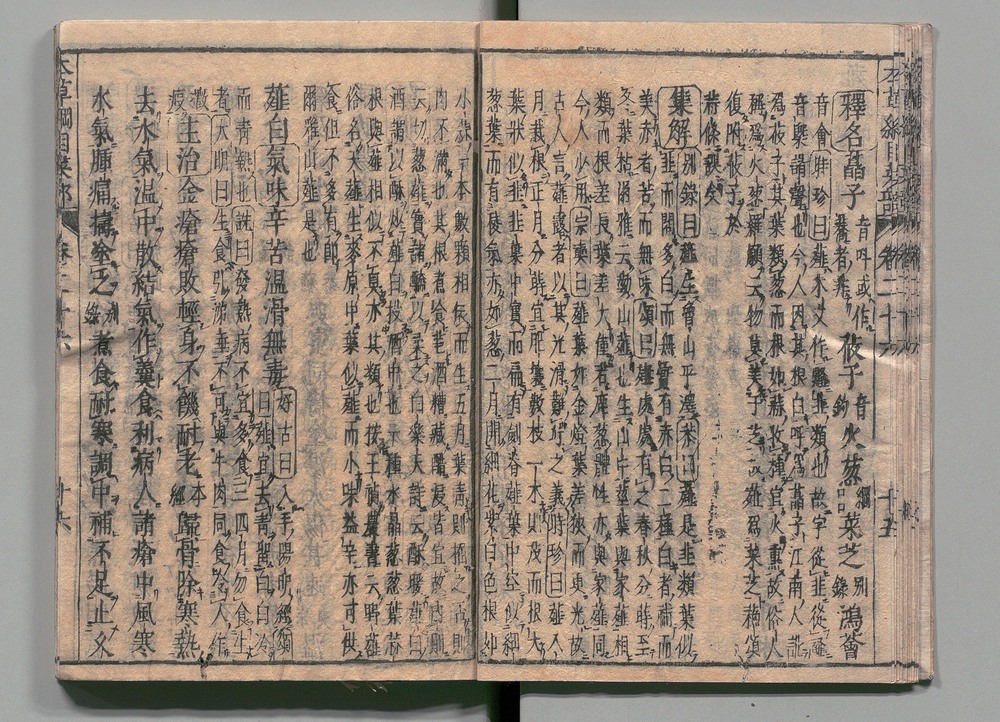 本草綱目菜部 卷二十六 十五
釋名藠子音叫或作蕎者非莜子音釣火葱綱目菜芝別錄鴻薈
音會時珍曰薤本文作䪥韭類也故字從韭從㕡
音槩諧聲也今人因其根白呼爲藠子江南人訛
爲莜子其葉類葱而根如蒜收種宜火熏故俗人
稱爲火葱羅願云物莫美于芝故薤爲菜芝蘇頌
復附莜子於
蒜條誤矣
集解別錄曰薤生魯山平澤恭曰薤是韭類葉似
韭而闊多白而無實有赤白二種白者補而
美赤者苦而無味頌曰薤處處有之春秋分蒔至
冬葉枯爾雅云䓂山薤也生山中莖葉與家薤相
類而根差長葉差大僅若鹿葱體性亦與家薤同
今人少用宗奭曰薤葉如金燈葉差狹而更光故
古人言薤露者以其光滑難竚之義時珍曰薤八
月栽根正月分蒔宜肥壤數枝一本則茂而根大
葉狀似韭韭葉中實而扁有劍脊薤葉中空似細
葱葉而有稜氣亦如葱二月開細花紫白色根如
小蒜一本數顆相依而生五月葉青則掘之否則
肉不滿也其根煮食芼酒糟藏醋浸皆宜故內則
云切葱薤實諸醯以柔之白樂天詩云酥暖薤白
酒謂以酥炒薤白投酒中也一種水晶葱葱葉蒜
根與薤相似不臭亦其類也按王禎農書云野薤
俗名天薤生麥原中葉似薤而小味益辛亦可供
食但不多有卽
爾雅山薤是也
薤白氣味辛苦溫滑無毒好古曰入手陽明經頌曰薤宜去青留白白冷
而青熱也詵曰發熱病不宜多食三四月勿食生
者大明曰生食引涕唾不可與牛肉同食令人作
癥瘕主治金瘡瘡敗輕身不饑耐老本經歸骨除寒熱
去水氣溫中散結氣作羹食利病人諸瘡中風寒
水氣腫痛擣塗之別錄煮食耐寒調中補不足止久
本草綱目菜部 卷二十六 十六